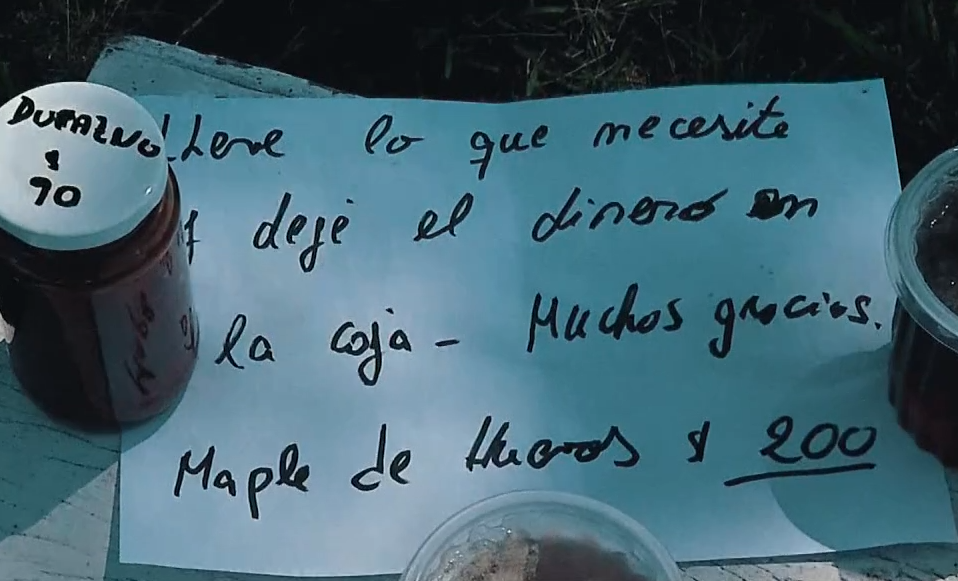 DURAZNO
$
70
LLeve lo que necesite
y dejé el dinero en
la caja - Muchas gracias.
Maple de Huevos $ 200